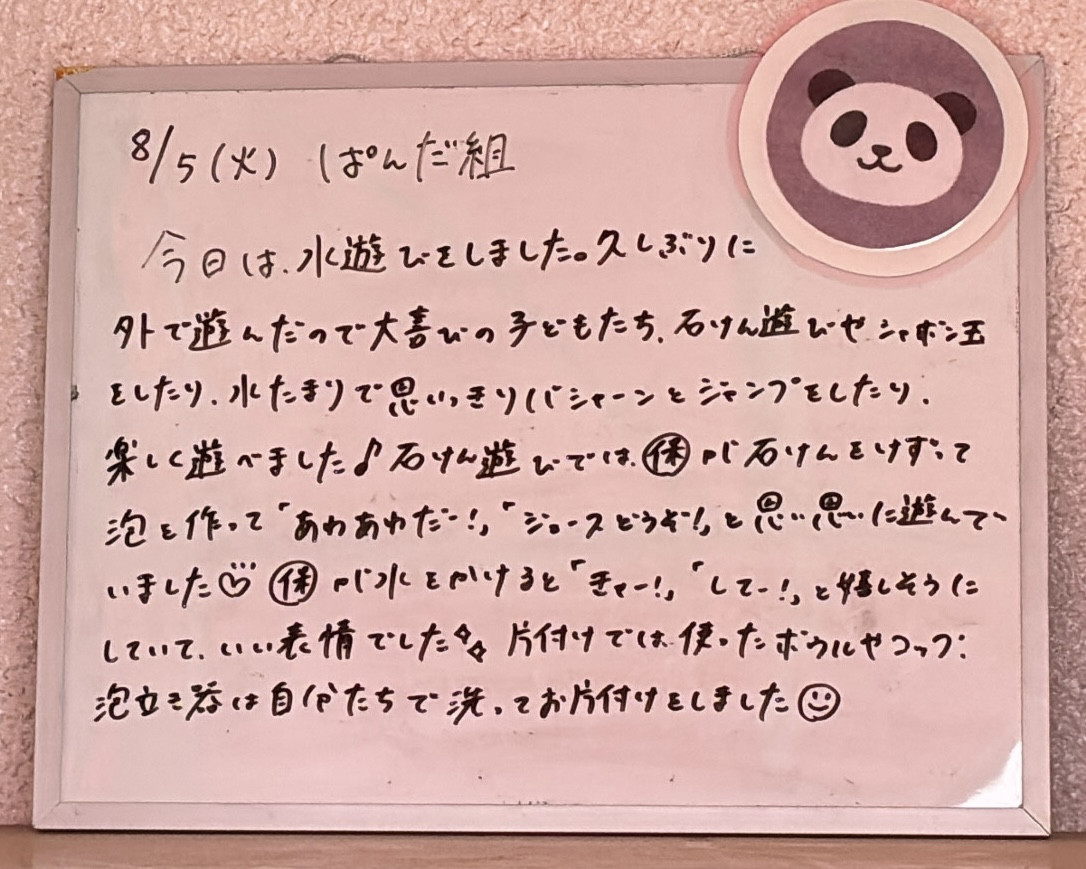 8/5(火) ぱんだ組
今日は、水遊びをしました。久しぶりに
外で遊んだので大喜びの子どもたち。石けん遊びやシャボン玉
をしたり、水たまりで思いっきりバシャーンとジャンプをしたり、
楽しく遊べました♪石けん遊びでは、㋭が石けんをけずって
泡を作って「あわあわだー!」「ジュースどうぞ!」と思い思いに遊んで
いました♡ 保が水をかけると「きゃー!」「してー!」と嬉しそうに
していて、いい表情でした✧ 片付けでは、使ったボウルやコップ、
泡立て器は自分たちで洗ってお片付けをしました☺